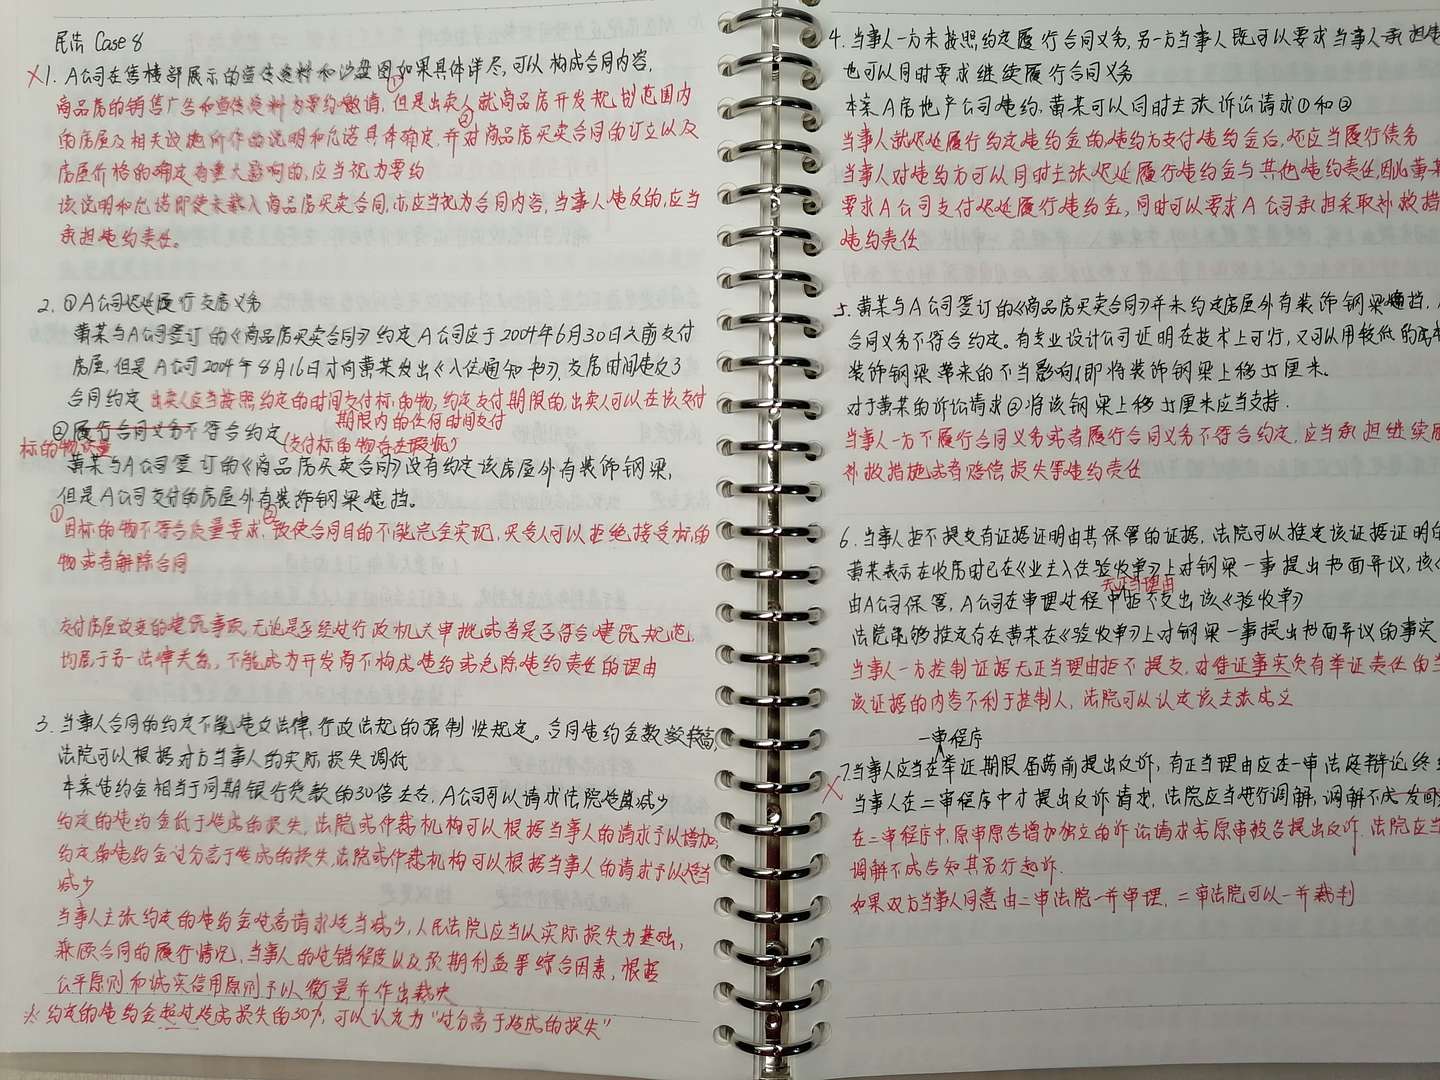 民法 Case 8
×1. A公司在售楼部展示的宣传资料和沙盘图如果具体详尽,可以构成合同内容,
商品房的销售广告和宣传资料为要约邀请,①但是出卖人就商品房开发规划范围内
的房屋及相关设施所作的说明和允诺具体确定,②并对商品房买卖合同的订立以及
房屋价格的确定有重大影响的,应当视为要约
该说明和允诺即使未载入商品房买卖合同,亦应当视为合同内容,当事人违反的,应当
承担违约责任。
2. ①A公司迟延履行交房义务
黄某与A公司签订的《商品房买卖合同》约定A公司应于2004年6月30日之前交付
房屋,但是A公司2004年8月16日才向黄某发出《入住通知书》,交房时间违反了
合同约定 出卖人应当按照约定的时间交付标的物,约定交付期限的,出卖人可以在该交付
期限内的任何时间交付
②履行合同义务不符合约定 (交付标的物存在瑕疵)
标的物质量
黄某与A公司签订的《商品房买卖合同》没有约定该房屋外有装饰钢梁,
但是A公司交付的房屋外有装饰钢梁遮挡。
①因标的物不符合质量要求,②致使合同目的不能完全实现,买受人可以拒绝接受标的
物或者解除合同
交付房屋改变的建筑事项,无论是否经过行政机关审批或者是否符合建筑规范,
均属于另一法律关系,不能成为开发商不构成违约或免除违约责任的理由
3. 当事人合同的约定不能违反法律,行政法规的强制性规定。合同违约金数额较高,
法院可以根据对方当事人的实际损失调低
本案违约金相当于同期银行贷款的30倍左右,A公司可以请求法院适度减少
约定的违约金低于造成的损失,法院或仲裁机构可以根据当事人的请求予以增加;
约定的违约金过分高于造成的损失,法院或仲裁机构可以根据当事人的请求予以适当
减少
当事人主张约定的违约金过高请求适当减少,人民法院应当以实际损失为基础,
兼顾合同的履行情况,当事人的过错程度以及预期利益等综合因素,根据
公平原则和诚实信用原则予以衡量并作出裁决
※约定的违约金超过造成损失的30%,可以认定为"过分高于造成的损失"
4. 当事人一方未按照约定履行合同义务,另一方当事人既可以要求当事人承担违
也可以同时要求继续履行合同义务
本案A房地产公司违约,黄某可以同时主张诉讼请求①和②
当事人就迟延履行约定违约金的,违约方支付违约金后,还应当履行债务
当事人对违约方可以同时主张迟延履行违约金与其他违约责任,因此黄某
要求A公司支付迟延履行违约金,同时可以要求A公司承担采取补救措
违约责任
5. 黄某与A公司签订的《商品房买卖合同》并未约定房屋外有装饰钢梁遮挡,
合同义务不符合约定。有专业设计公司证明在技术上可行,又可以用较低的成本
装饰钢梁带来的不当影响,即将装饰钢梁上移5厘米。
对于黄某的诉讼请求②将该钢梁上移5厘米应当支持.
当事人一方不履行合同义务或者履行合同义务不符合约定,应当承担继续履
补救措施或者赔偿损失等违约责任
6. 当事人拒不提交有证据证明由其保管的证据,法院可以推定该证据证明的
黄某表示在收房时已在《业主入住验收单》上对钢梁一事提出书面异议,该《
由A公司保管,A公司在审理过程中无正当理由拒不交出该《验收单》
法院能够推定存在黄某在《验收单》上对钢梁一事提出书面异议的事实
当事人一方控制证据无正当理由拒不提交,对待证事实负有举证责任的当
该证据的内容不利于控制人,法院可以认定该主张成立
一审程序
×7.当事人应当在举证期限届满前提出反诉,有正当理由应在一审法庭辩论终
当事人在二审程序中才提出反诉请求,法院应当进行调解,调解不成发回
在二审程序中,原审原告增加独立的诉讼请求或原审被告提出反诉,法院应当
调解不成告知其另行起诉.
如果双方当事人同意由二审法院一并审理,二审法院可以一并裁判